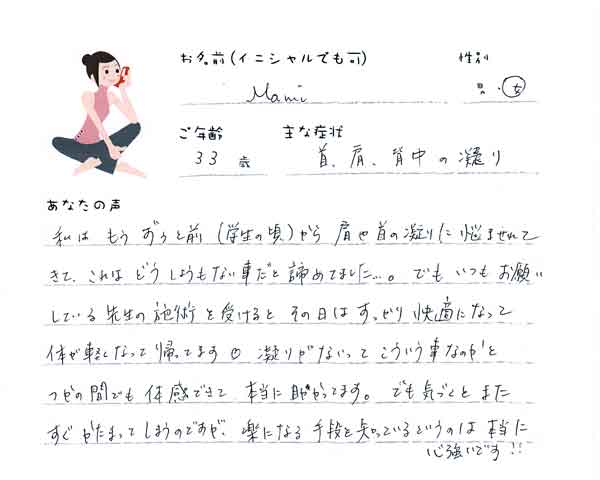 お名前(イニシャルでも可) 性別
Mami 男・女
ご年齢 主な症状
33 歳 首、肩、背中の凝り
あなたの声
私は もう ずっと前 (学生の頃)から 肩や首の凝りに悩まされて
きて、これは どうしようもない事だと 諦めてました…。 でも いつも お願い
している 先生の 施術を 受けると その日は すっきり 快適になって
体が軽くなって帰ってます☺ 凝りがないって こういう事なのかと
つかの間でも 体感できて 本当に 助かってます。 でも 気づくと また
すぐ かたまって しまうのですが、 楽になる 手段を 知っているというのは 本当に
心強いです!!